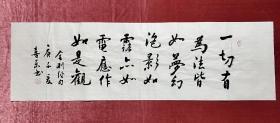 一切有
為法皆
如夢幻
泡影如
露亦如
電應作
如是觀
金刚经句
庚子夏
书